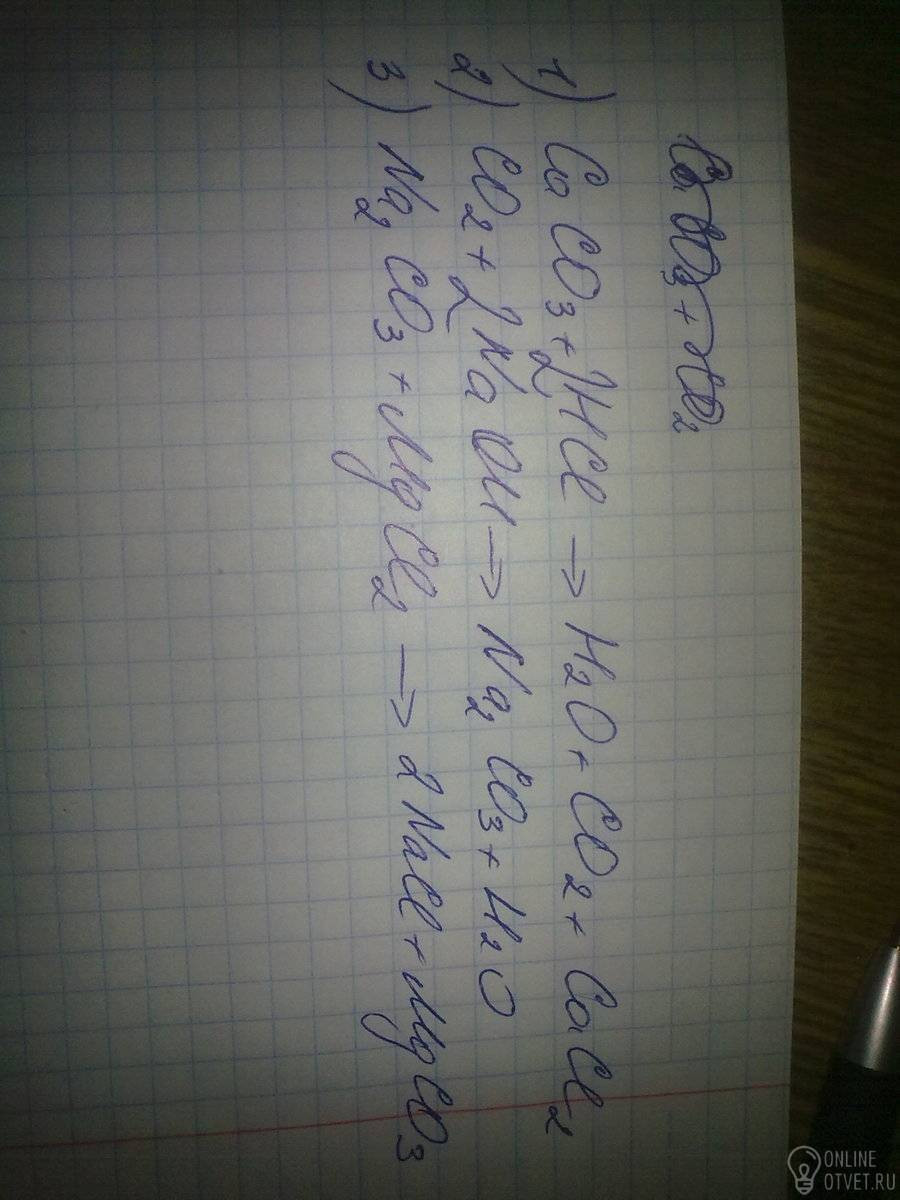 CaCO3 + CO2
1) CaCO3 + 2HCl → H2O + CO2 + CaCl2
2) CO2 + 2NaOH → Na2CO3 + H2O
3) Na2CO3 + MgCl2 → 2NaCl + MgCO3
ONLINE
OTVET.RU